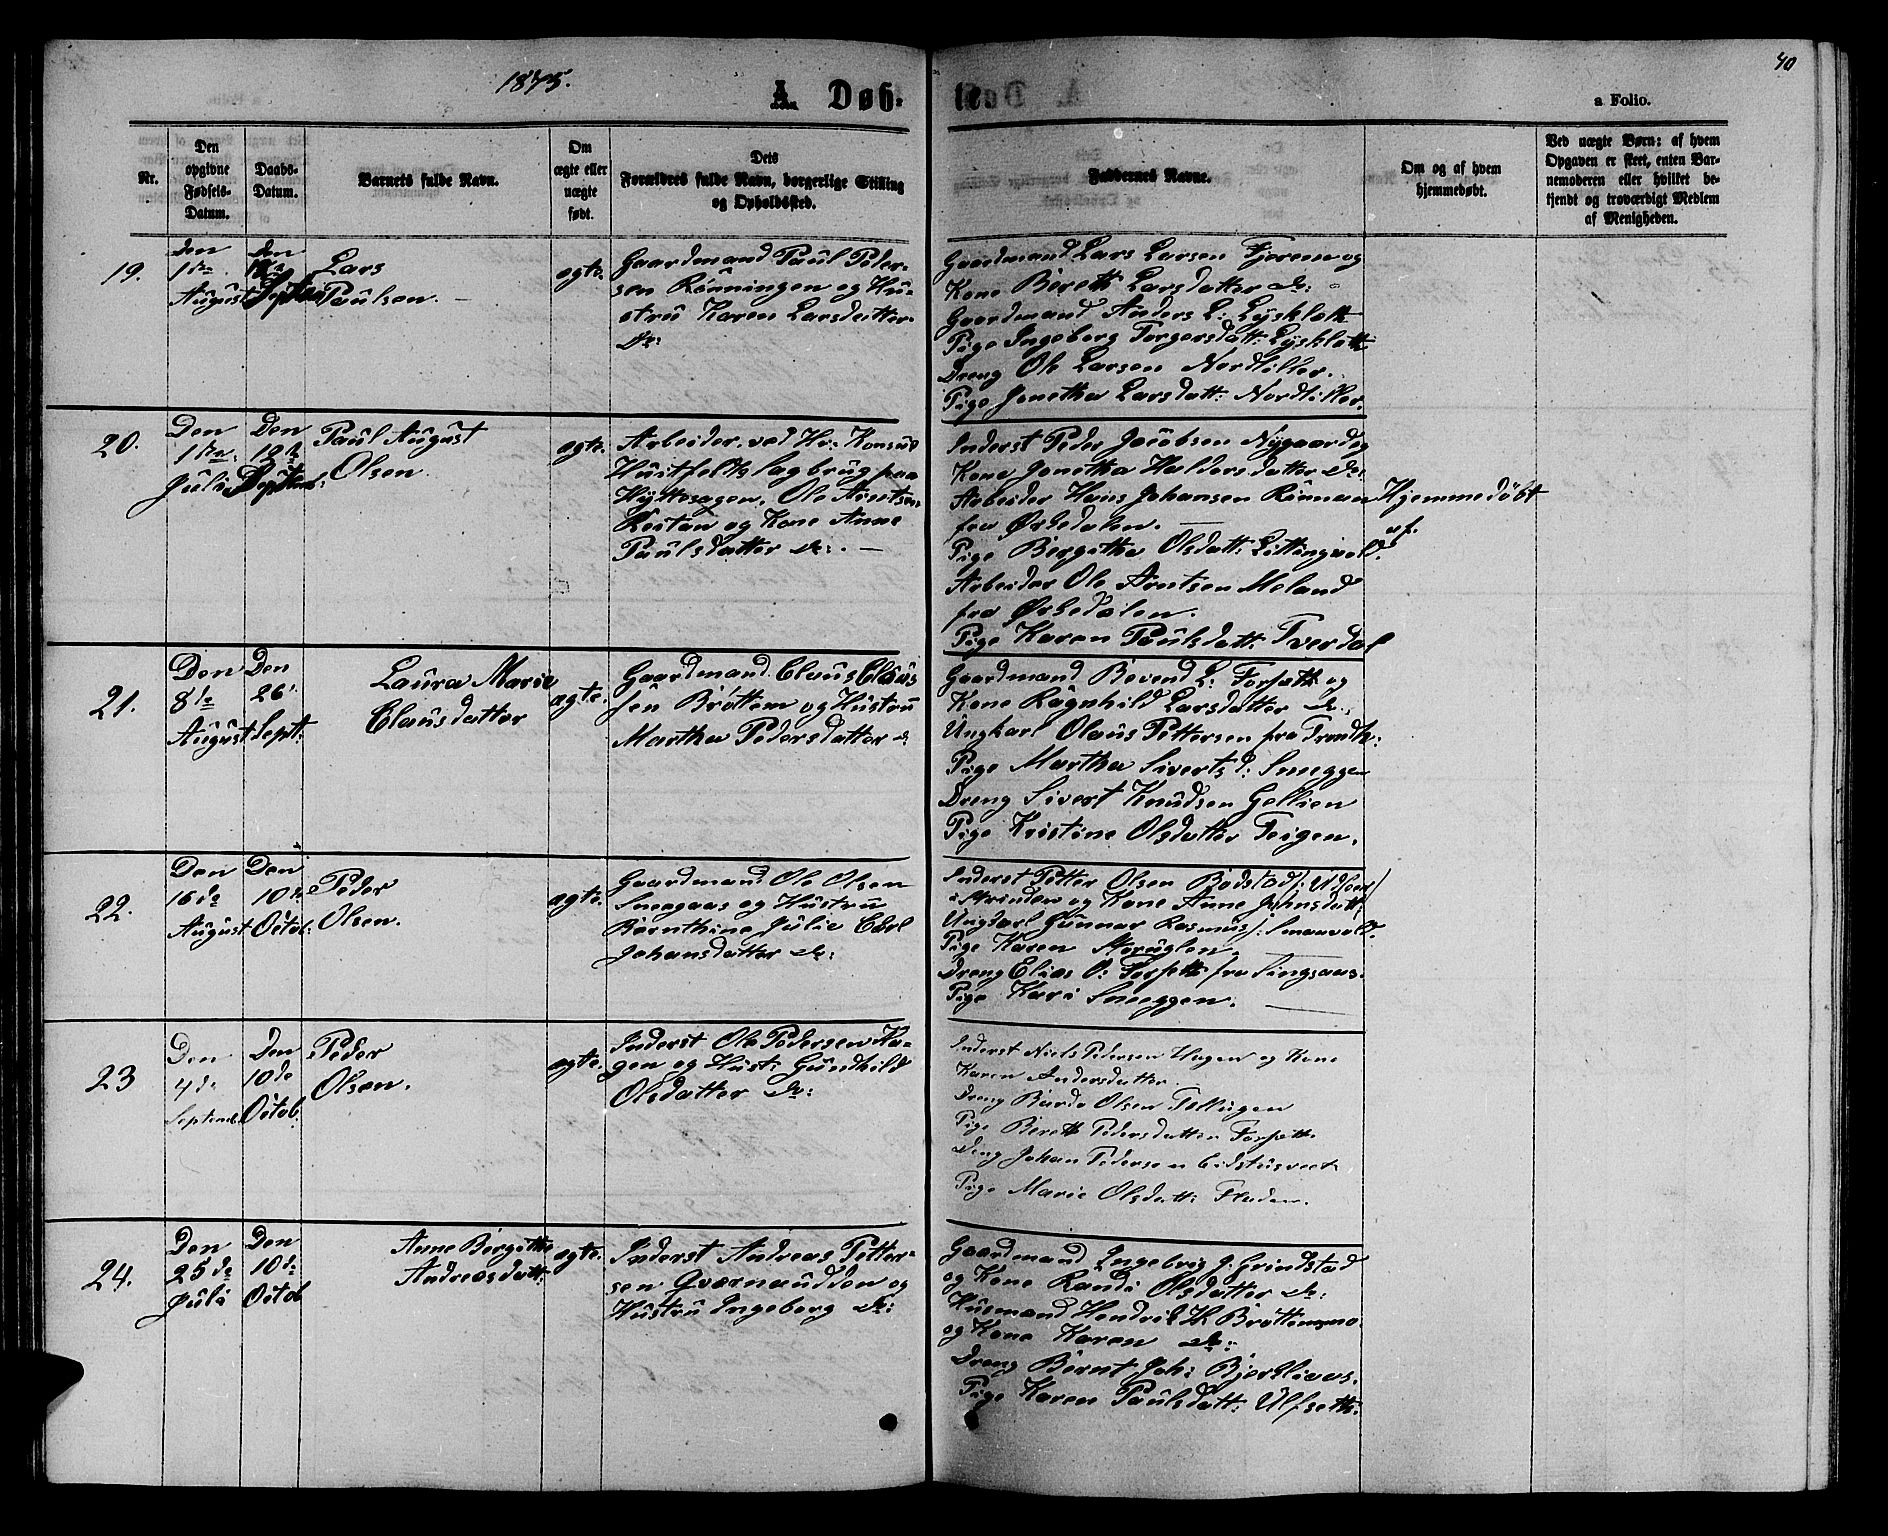 1875.
A. Døb-
te
40
a Folio.
Nr.
Den opgivne Fødsels-Datum.
Daabs-Datum.
Barnets fulde Navn.
Om ægte eller uægte født.
Dets Forældres fulde Navn, borgerlige Stilling og Opholdssted.
Faddernes Navne.
Om og af hvem hjemmedøbt.
Ved uægte Børn: af hvem Opgaven er skeet, enten Barnemoderen eller hvilket betjendt og troværdigt Medlem af Menigheden.
19.
Den 1ste August
Den Septem
Lars
Paulsen.
ægte.
Gaardmand Paul Peder-
sen Rönningen og Hu-
strü Karen Larsdatter
do:
Gaardmand Lars Larsen Fjærem og
Kone Berett Larsdatter do:
Gaardmand Anders L: Lysklæt
Pige Ingeborg Torgersdatt: Lysklæt
Dreng Ole Larsen Nordtiller.
Pige Jonetha Larsdatt: Nordtiller.
20.
Den 1ste Juli
Den 12te Septemb:
Paul August
Olsen.
ægte.
Arbeider ved Hr: Konsul
Huitfeldts sagbrug paa
Hÿttesagen, Ole Arntsen
Restan og Kone Anne
Paulsdatter do:
Inderst Peder Jacobsen Nÿgaard og
Kone Jonetha Haldorsdatter do:
Arbeider Hans Johansen Rönnan
fra Ørkedalen.
Pige Bergitha Olsdatt: Littingvold.
Arbeider Ole Arntsen Meland
fra Ørkedalen.
Pige Karen Paulsdatt: Tverdal
Hjemmedöbt
af.
21.
Den 8de August
Den 26' Sept:
Laura Marie
Clausdatter
ægte.
Gaardmand Claus Claus
sen Brøttem og Hustrü
Martha Pedersdatter do
Gaardmand Bovend L: Forsæth og
Kone Ragnhild Larsdatter do.
Ungkarl Olaus Pettersen fra Trondh:
Pige Martha Sivertsd: Sneeggen
Dreng Sivert Knüdsen Gellien
Pige Kristine Olsdatter Teigen.
22.
Den 16de August
Den 10de Octob:
Peder
Olsen.
ægte.
Gaardmand Ole Olsen
Sneegaas og Hustrü
Bernthine Julie Carl
Johansdatter do:
Inderst Petter Olsen
i Strinden og Kone Anne Johnsdatt:
Ungkarl Gunnar Rasmus:
Pige Karen
Dreng Elias O: Forseth fra Singsaas.
Pige Kari Sneeggen.
23
Den 4de Septemb.
Den 10de Octob.
Peder
Olsen.
ægte.
Inderst Ole Pedersen Ha-
gen og Hust: Gundhild
Olsdatter do:
Inderst Niels Pedersen Hagen og Kone
Karen Andersdatter.
Dreng Bardo Olsen Tellugen
Pige Berett Pedersdatter Forsett.
Dreng Johan Pedersen
Pige Marie Olsdatt:
24.
Den 25de Juli
Den 10de Octob
Anne Bergitte
Andreasdatt:
ægte.
Inderst Andreas Petter-
sen Qværnaudden og
Hustrü Ingeborg do:
Gaardmand Ingebrig J. Grindstad
og Kone Randi Olsdatter do:
Husmand Hendrik H. Bröttemsmo.
og Kone Karen do:
Dreng Bernt Joh: Bjerkliaas.
Pige Karen Paulsdatt: Ulfseth.